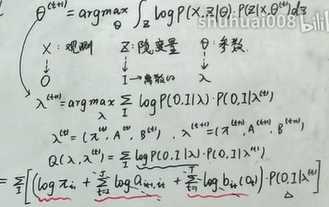 θ^(t+1) = argmax_θ ∫_Z log P(X,Z|θ)·P(Z|X,θ^(t)) dz
shuhuai008 bilibili
X: 观测 Z: 隐变量 θ: 参数
O I→离散的 λ
λ^(t+1) = argmax_λ Σ_I log P(O,I|λ)·P(O,I|λ^(t))
λ^(t) = (π^(t), A^(t), B^(t)), λ^(t+1) = (π^(t+1), A^(t+1), B^(t+1))
Q(λ,λ^(t)) = Σ_I log P(O,I|λ)·P(O,I|λ^(t))
= Σ_I [(log π_i1 + Σ log a_it,it+1 + Σ log b_it(o_t))·P(O,I|λ^(t))]